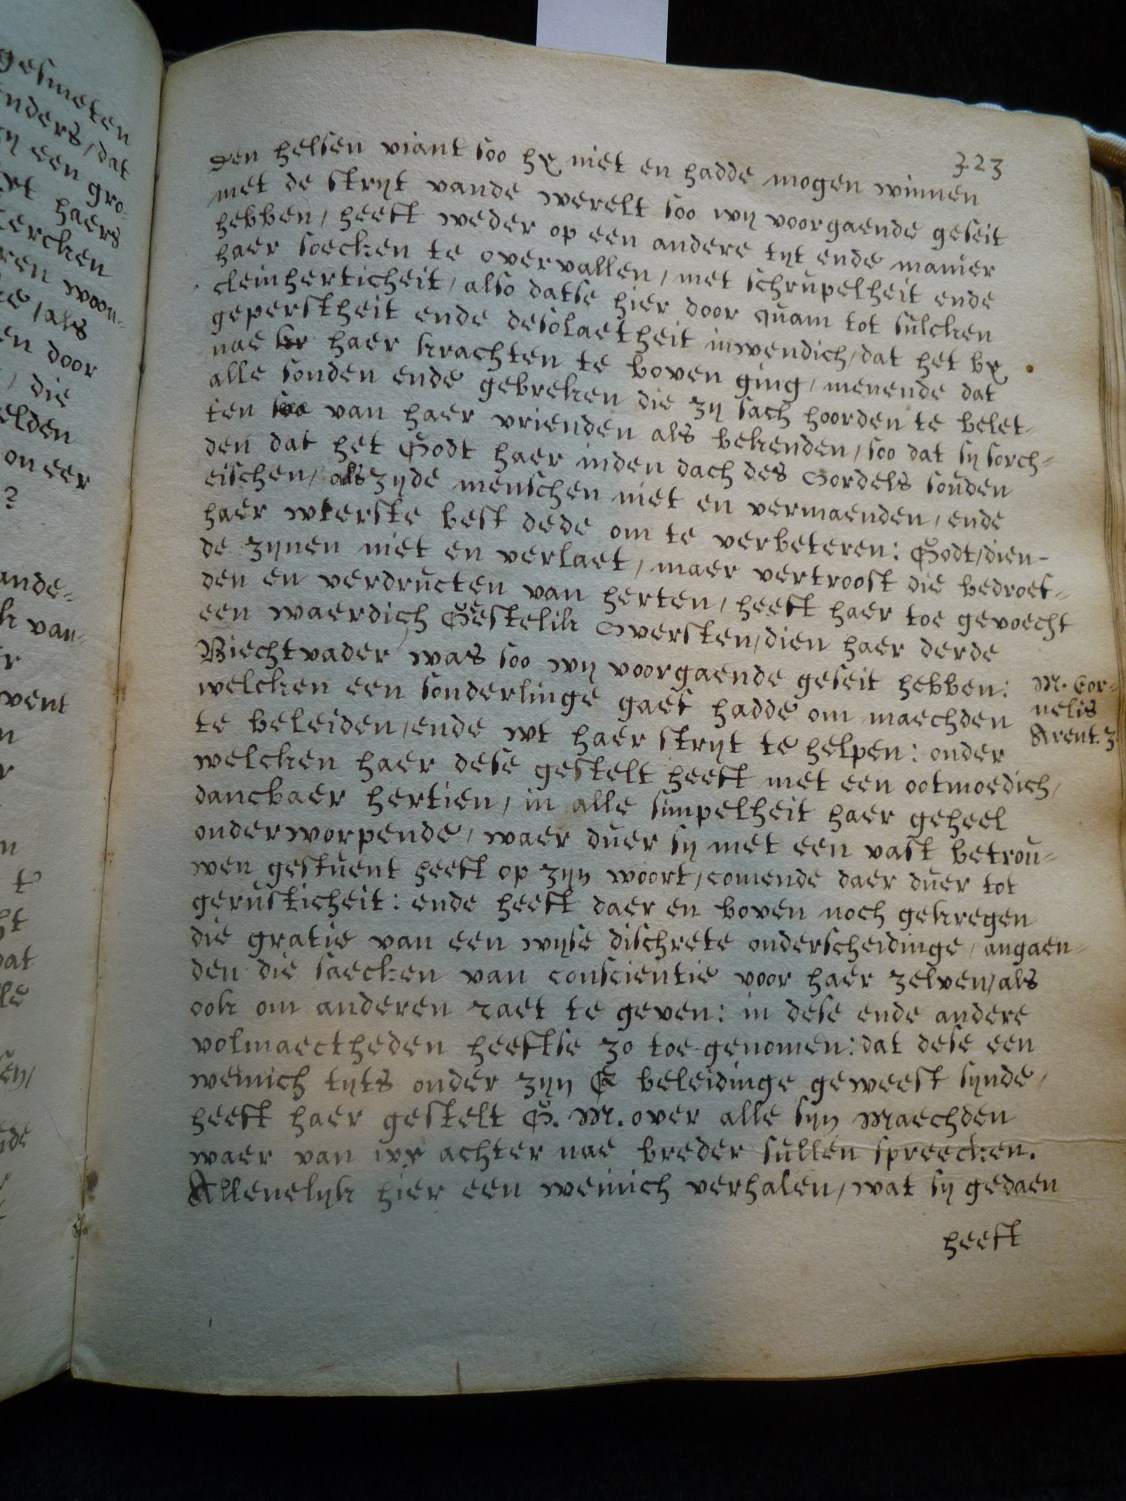 323
den helsen viant soo hy niet en hadde mogen winnen
met de strijt vande werelt soo wij voorgaende geseit
hebben, heeft weder op een andere tijt ende manier
haer soecken te overvallen, met schrupelheit ende
cleinherticheit, also datse hier door quam tot sulcken
gepersthe͏it ende desolaetheit inwendich, dat het by
nae haer krachten te boven ging, menende dat
alle sonden ende gebreken die zij sach hoorden te belet-
ten van haer vrienden als bekenden, soo dat sij sorch-
den dat het Godt haer inden dach des Oordels souden
eischen, als zijde menschen niet en vermaenden, ende
haer wterste best dede om te verbeteren: Godt, dien-
de zijnen niet en verlaet, maer vertroost die bedroef-
den en verdructen van herten, heeft haer toe gevoecht
een waerdich Gestelik Oversten, dien haer derde
Biechtvader was soo wij voorgaende geseit hebben:
welcken een sonderlinge gaef hadde om maechden
te beleiden, ende wt haer strijt te helpen: onder
welcken haer dese gestelt heeft met een ootmoedich,
danckbaer hertien, in alle simpelheit haer geheel
onderworpende, waer duer sij met een vast betrou-
wen gestuent heeft op zijn woort, comende daer duer tot
gerusticheit: ende heeft daer en boven noch gekregen
die gratie van een wijse dischrete onderscheidinge, angaen-
den die saecken van conscientie voor haer zelven, als
ook om anderen raet te geven: in dese ende andere
volmaectheden heeftse zo toe genomen: dat dese een
weinich tijts onder zijn beleidinge geweest sijnde,
heeft haer gestelt G. M. over alle sijn Maechden
waer van wy achter nae breder sullen spreecken.
Allenelijk hier een weinich verhalen, wat sij gedaen
heeft
M. Cor-
nelis
Arent. z.